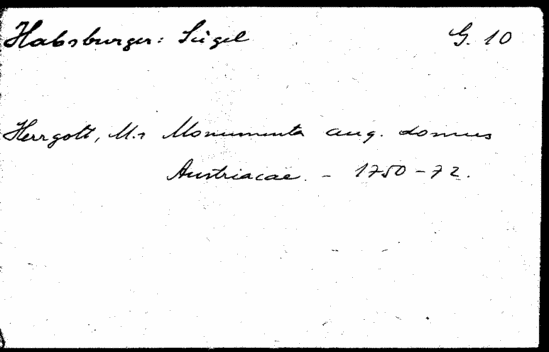 Habsburger: Siegel G. 10
Herrgott, M.: Monumenta aug. domus
Austriacae. - 1750-72.